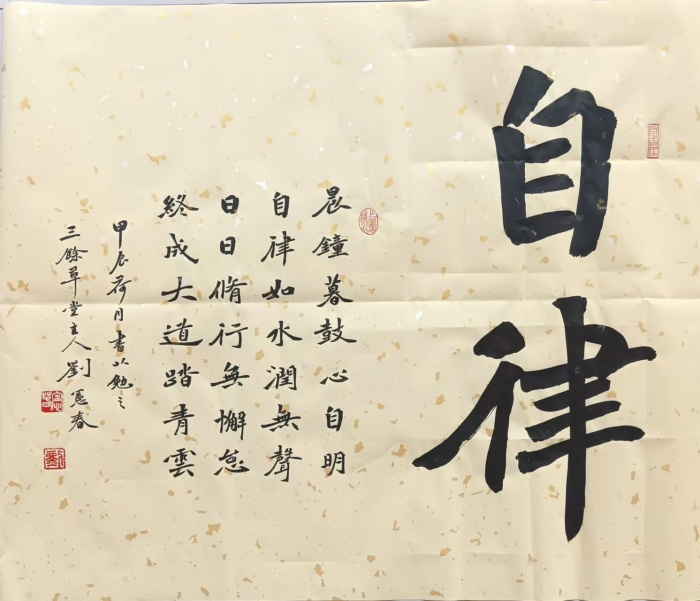 自律
晨鐘暮鼓心自明
自律如水潤無聲
日日脩行無懈怠
終成大道踏青雲
甲辰荷月書以勉之
三餘草堂主人劉憲春